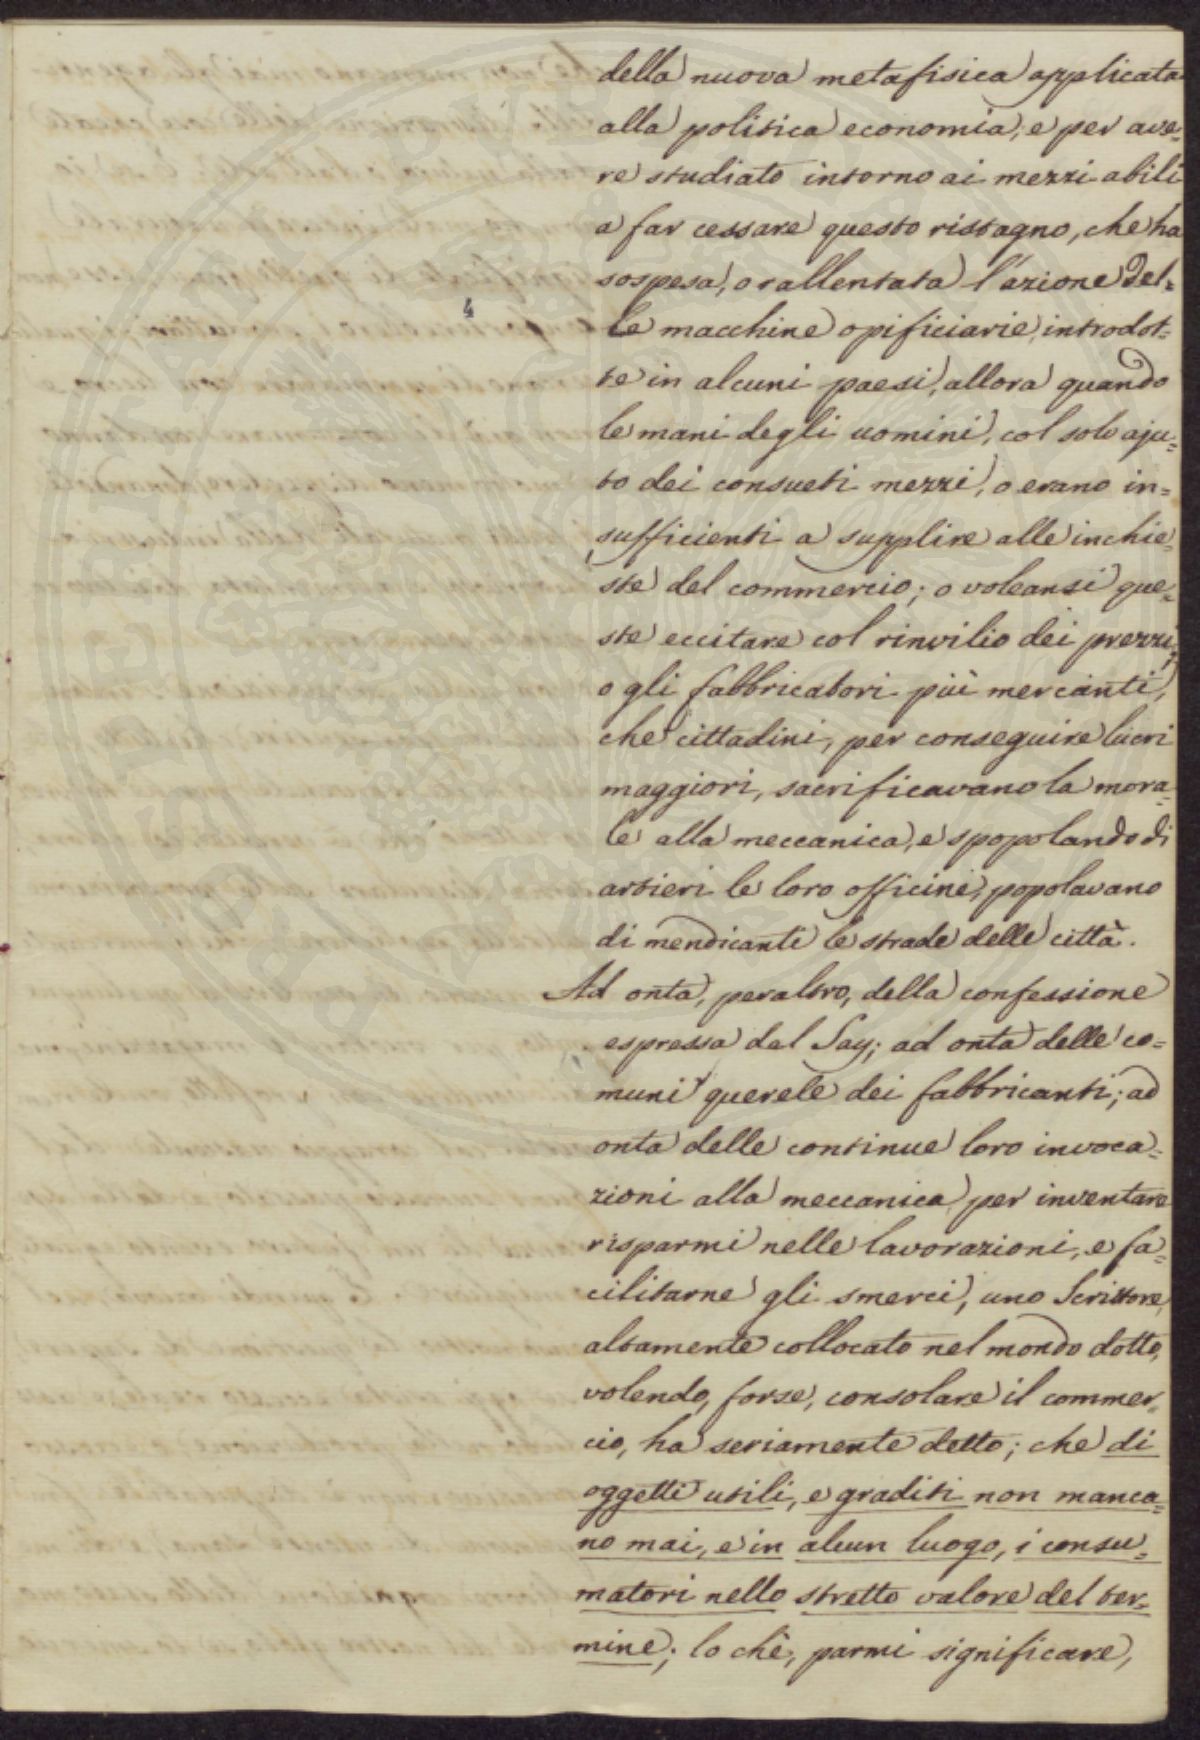 della nuova metafisica applicata
alla politica economia, e per ave=
re studiato intorno ai mezzi abili
a far cessare questo ristagno, che ha
sospesa, o rallentata l'azione del=
le macchine opificiarie, introdot=
te in alcuni paesi, allora quando
le mani degli uomini, col solo aju=
to dei consueti mezzi, o erano in=
sufficienti a supplire alle inchie=
ste del commercio; o voleansi que=
ste eccitare col rinvilio dei prezzi;
o gli fabbricatori più mercanti,
che cittadini, per conseguire lucri
maggiori, sacrificavano la mora=
le alla meccanica, e spopolando di
artieri le loro officine, popolavano
di mendicanti le strade delle città.
Ad onta, peraltro, della confessione
espressa dal Say; ad onta delle co=
muni querele dei fabbricanti; ad
onta delle continue loro invoca=
zioni alla meccanica per inventare
risparmi nelle lavorazioni, e fa=
cilitarne gli smerci, uno Scrittore,
altamente collocato nel mondo dotto,
volendo, forse, consolare il commer=
cio, ha seriamente detto; che di
oggetti utili, e graditi non manca=
no mai, e in alcun luogo, i consu=
matori nello stretto valore del ter=
mine; lo chè, parmi significare,
4